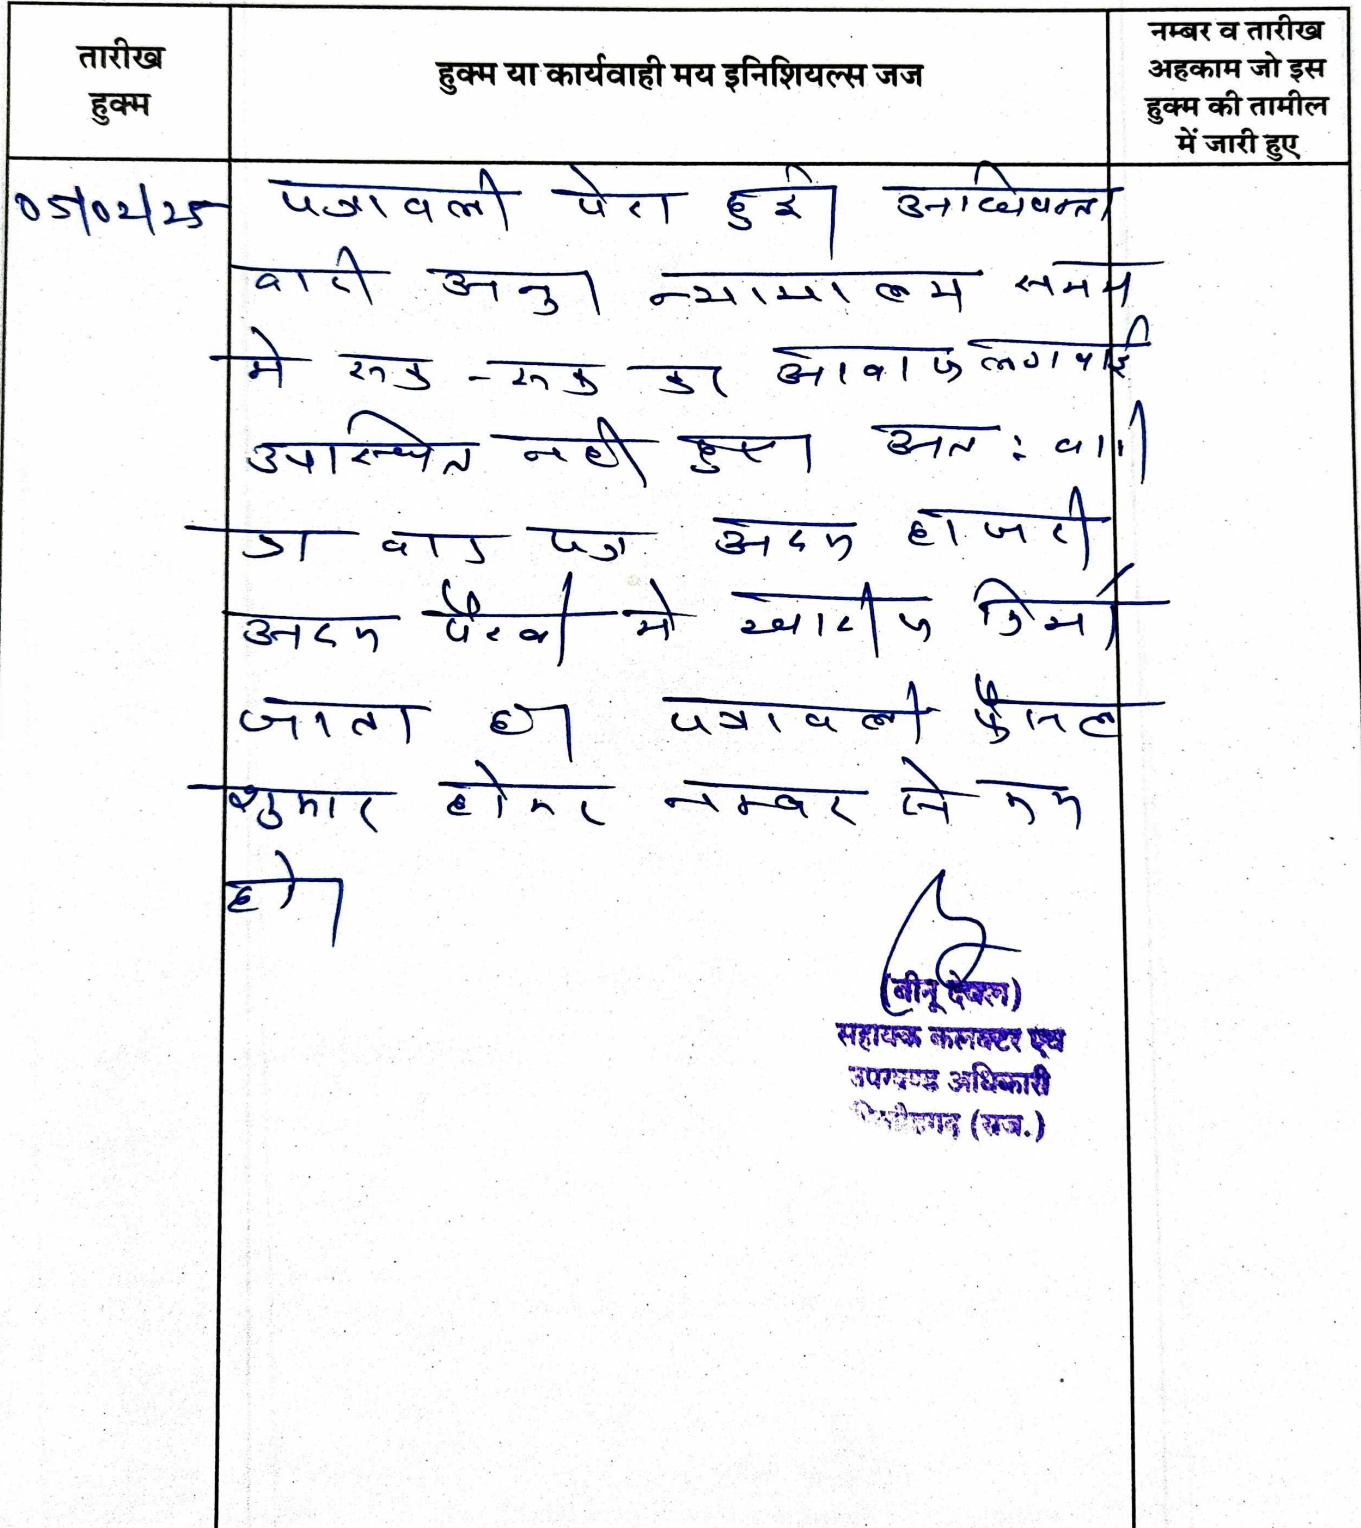 तारीख
हुक्म
हुक्म या कार्यवाही मय इनिशियल्स जज
नम्बर व तारीख
अहकाम जो इस
हुक्म की तामील
में जारी हुए
05/02/25 पत्रावली पेश हुई। अधिवक्ता
वादी अनु। न्यायालय समय
मे रुक-रुक कर आवाज लगवाई
उपस्थित नही हुए। अत: वादी
का वाद पत्र अदम हाजरी
अदम पैरवी मे खारीज किया
जाता है। पत्रावली फैसल
शुमार होकर नम्बर से कम
हो।
(बीनू देवल)
सहायक कलक्टर एवं
उपखण्ड अधिकारी
चित्तौड़गढ़ (राज.)